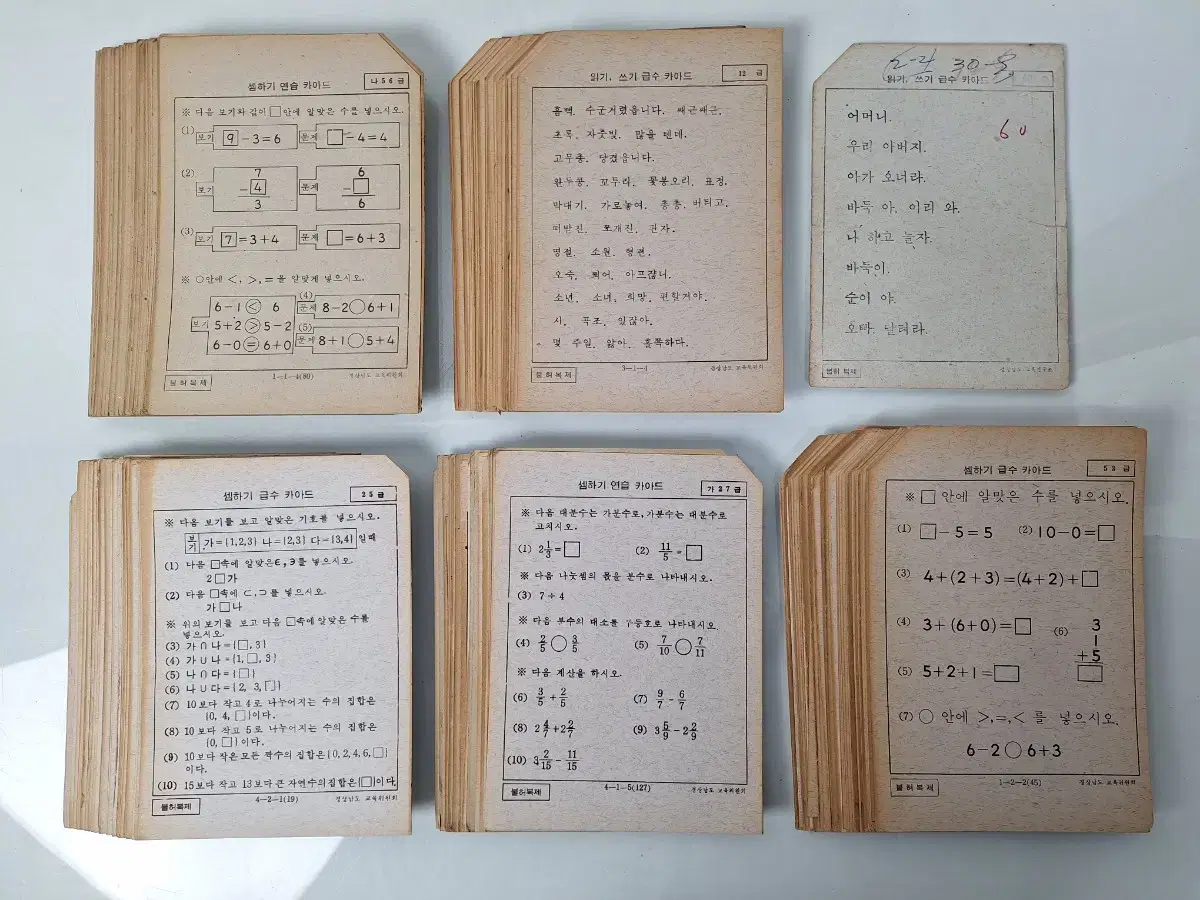 셈하기 연습 카아드
나 5 6 급
※ 다음 보기와 같이 □ 안에 알맞은 수를 넣으시오.
(1) 보기 9 - 3 = 6 문제 □ - 4 = 4
(2) 보기 7 - 4 3 문제 6 - □ 6
(3) 보기 7 = 3 + 4 문제 □ = 6 + 3
※ ○안에 <, >, = 를 알맞게 넣으시오.
보기
6 - 1 < 6
5 + 2 > 5 - 2
6 - 0 = 6 + 0
(4) 문제 8 - 2 ○ 6 + 1
(5) 문제 8 + 1 ○ 5 + 4
불허복제
1-1-4(80)
경상남도 교육위원회
읽기, 쓰기 급수 카아드
12 급
흠뻑. 수군거렸읍니다. 쌔근쌔근.
초록. 자줏빛. 많을 텐데.
고무총. 당겼읍니다.
완두콩. 꼬투리. 꽃봉오리. 표정.
막대기. 가로놓여. 총총. 버티고.
쪼개진. 판자.
명절. 소원. 형편.
소년. 소녀. 희망.
시. 곡조. 있잖아.
몇 주일. 앓아. 홀쭉하다.
불허복제
3-1-4
경상남도 교육위원회
30
읽기, 쓰기 급수 카아드
60
어머니.
우리 아버지.
아가 오너라.
바둑 아. 이리 와.
나 하고 놀자.
바둑이.
순이 야.
오빠. 달려라.
불허 복제
셈하기 급수 카아드
2 5 급
※ 다음 보기를 보고 알맞은 기호를 넣으시오.
보기 가 = {1,2,3} 나 = {2,3} 다 = {3,4} 일때
(1) 다음 □속에 알맞은 ∈, ∋를 넣으시오.
2 □ 가
(2) 다음 □속에 ⊂, ⊃를 넣으시오.
가 □ 나
※ 위의 보기를 보고 다음 □속에 알맞은 수를
넣으시오.
(3) 가 ∩ 나 = {□, 3}
(4) 가 ∪ 나 = {1, □, 3}
(5) 나 ∩ 다 = {□}
(6) 나 ∪ 다 = {2, 3, □}
(7) 10보다 작고 4로 나누어지는 수의 집합은
{0, 4, □}이다.
(8) 10보다 작고 5로 나누어지는 수의 집합은
{0, □}이다.
(9) 10보다 작은 모든 짝수의 집합은 {0, 2, 4, 6, □}
이다.
(10) 15보다 작고 13보다 큰 자연수의 집합은 {□}이다.
불허복제
4-2-1(19)
경상남도 교육위원회
셈하기 연습 카아드
가 3 7 급
※ 다음 대분수는 가분수로, 가분수는 대분수로
고치시오.
(1) 2 1/3 = □ (2) 11/5 = □
※ 다음 나눗셈의 몫을 분수로 나타내시오.
(3) 7 ÷ 4
※ 다음 분수의 대소를 부등호로 나타내시오.
(4) 2/5 ○ 3/5 (5) 7/10 ○ 7/11
※ 다음 계산을 하시오.
(6) 3/5 + 2/5 (7) 9/7 - 6/7
(8) 2 4/7 + 2 2/7 (9) 3 5/9 - 2 2/9
(10) 3 2/15 - 11/15
불허복제
4-1-5(127)
경상남도 교육위원회
셈하기 급수 카아드
5 3 급
※ □ 안에 알맞은 수를 넣으시오.
(1) □ - 5 = 5 (2) 10 - 0 = □
(3) 4 + (2 + 3) = (4 + 2) + □
(4) 3 + (6 + 0) = □
(6) 3 1 + 5 □
(5) 5 + 2 + 1 = □
(7) ○ 안에 >, =, < 를 넣으시오.
6 - 2 ○ 6 + 3
불허복제
1-2-2(45)
경상남도 교육위원회